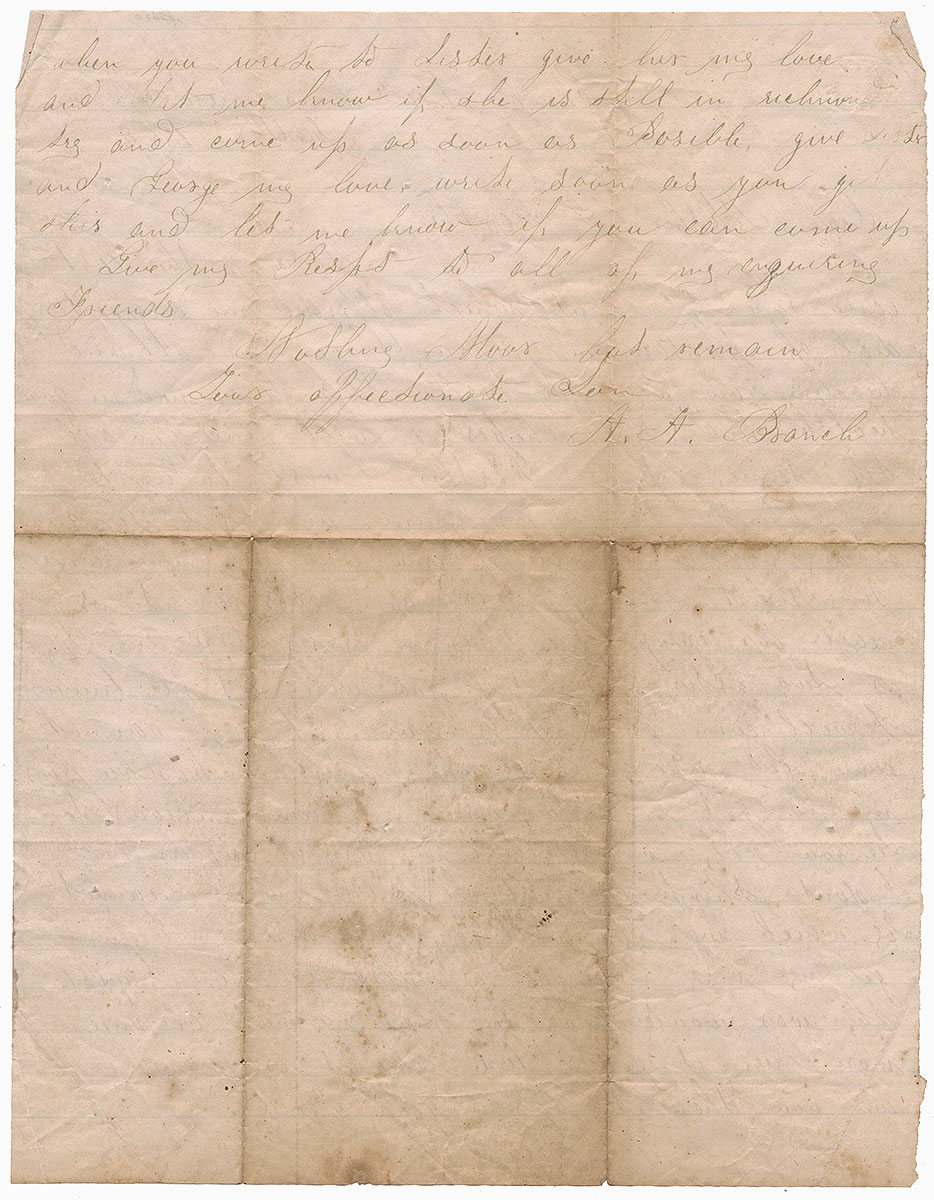 when you write to Sister give her my love
and let me know if she is still in richmond
try and come up as soon as Posible, give sister
and George my love. write soon as you get
this and let me know if you can come up
Give my Respt to all of my enquiring
Friends
Nothing Moor but remain
Your affectionate Son
A. A. Branch